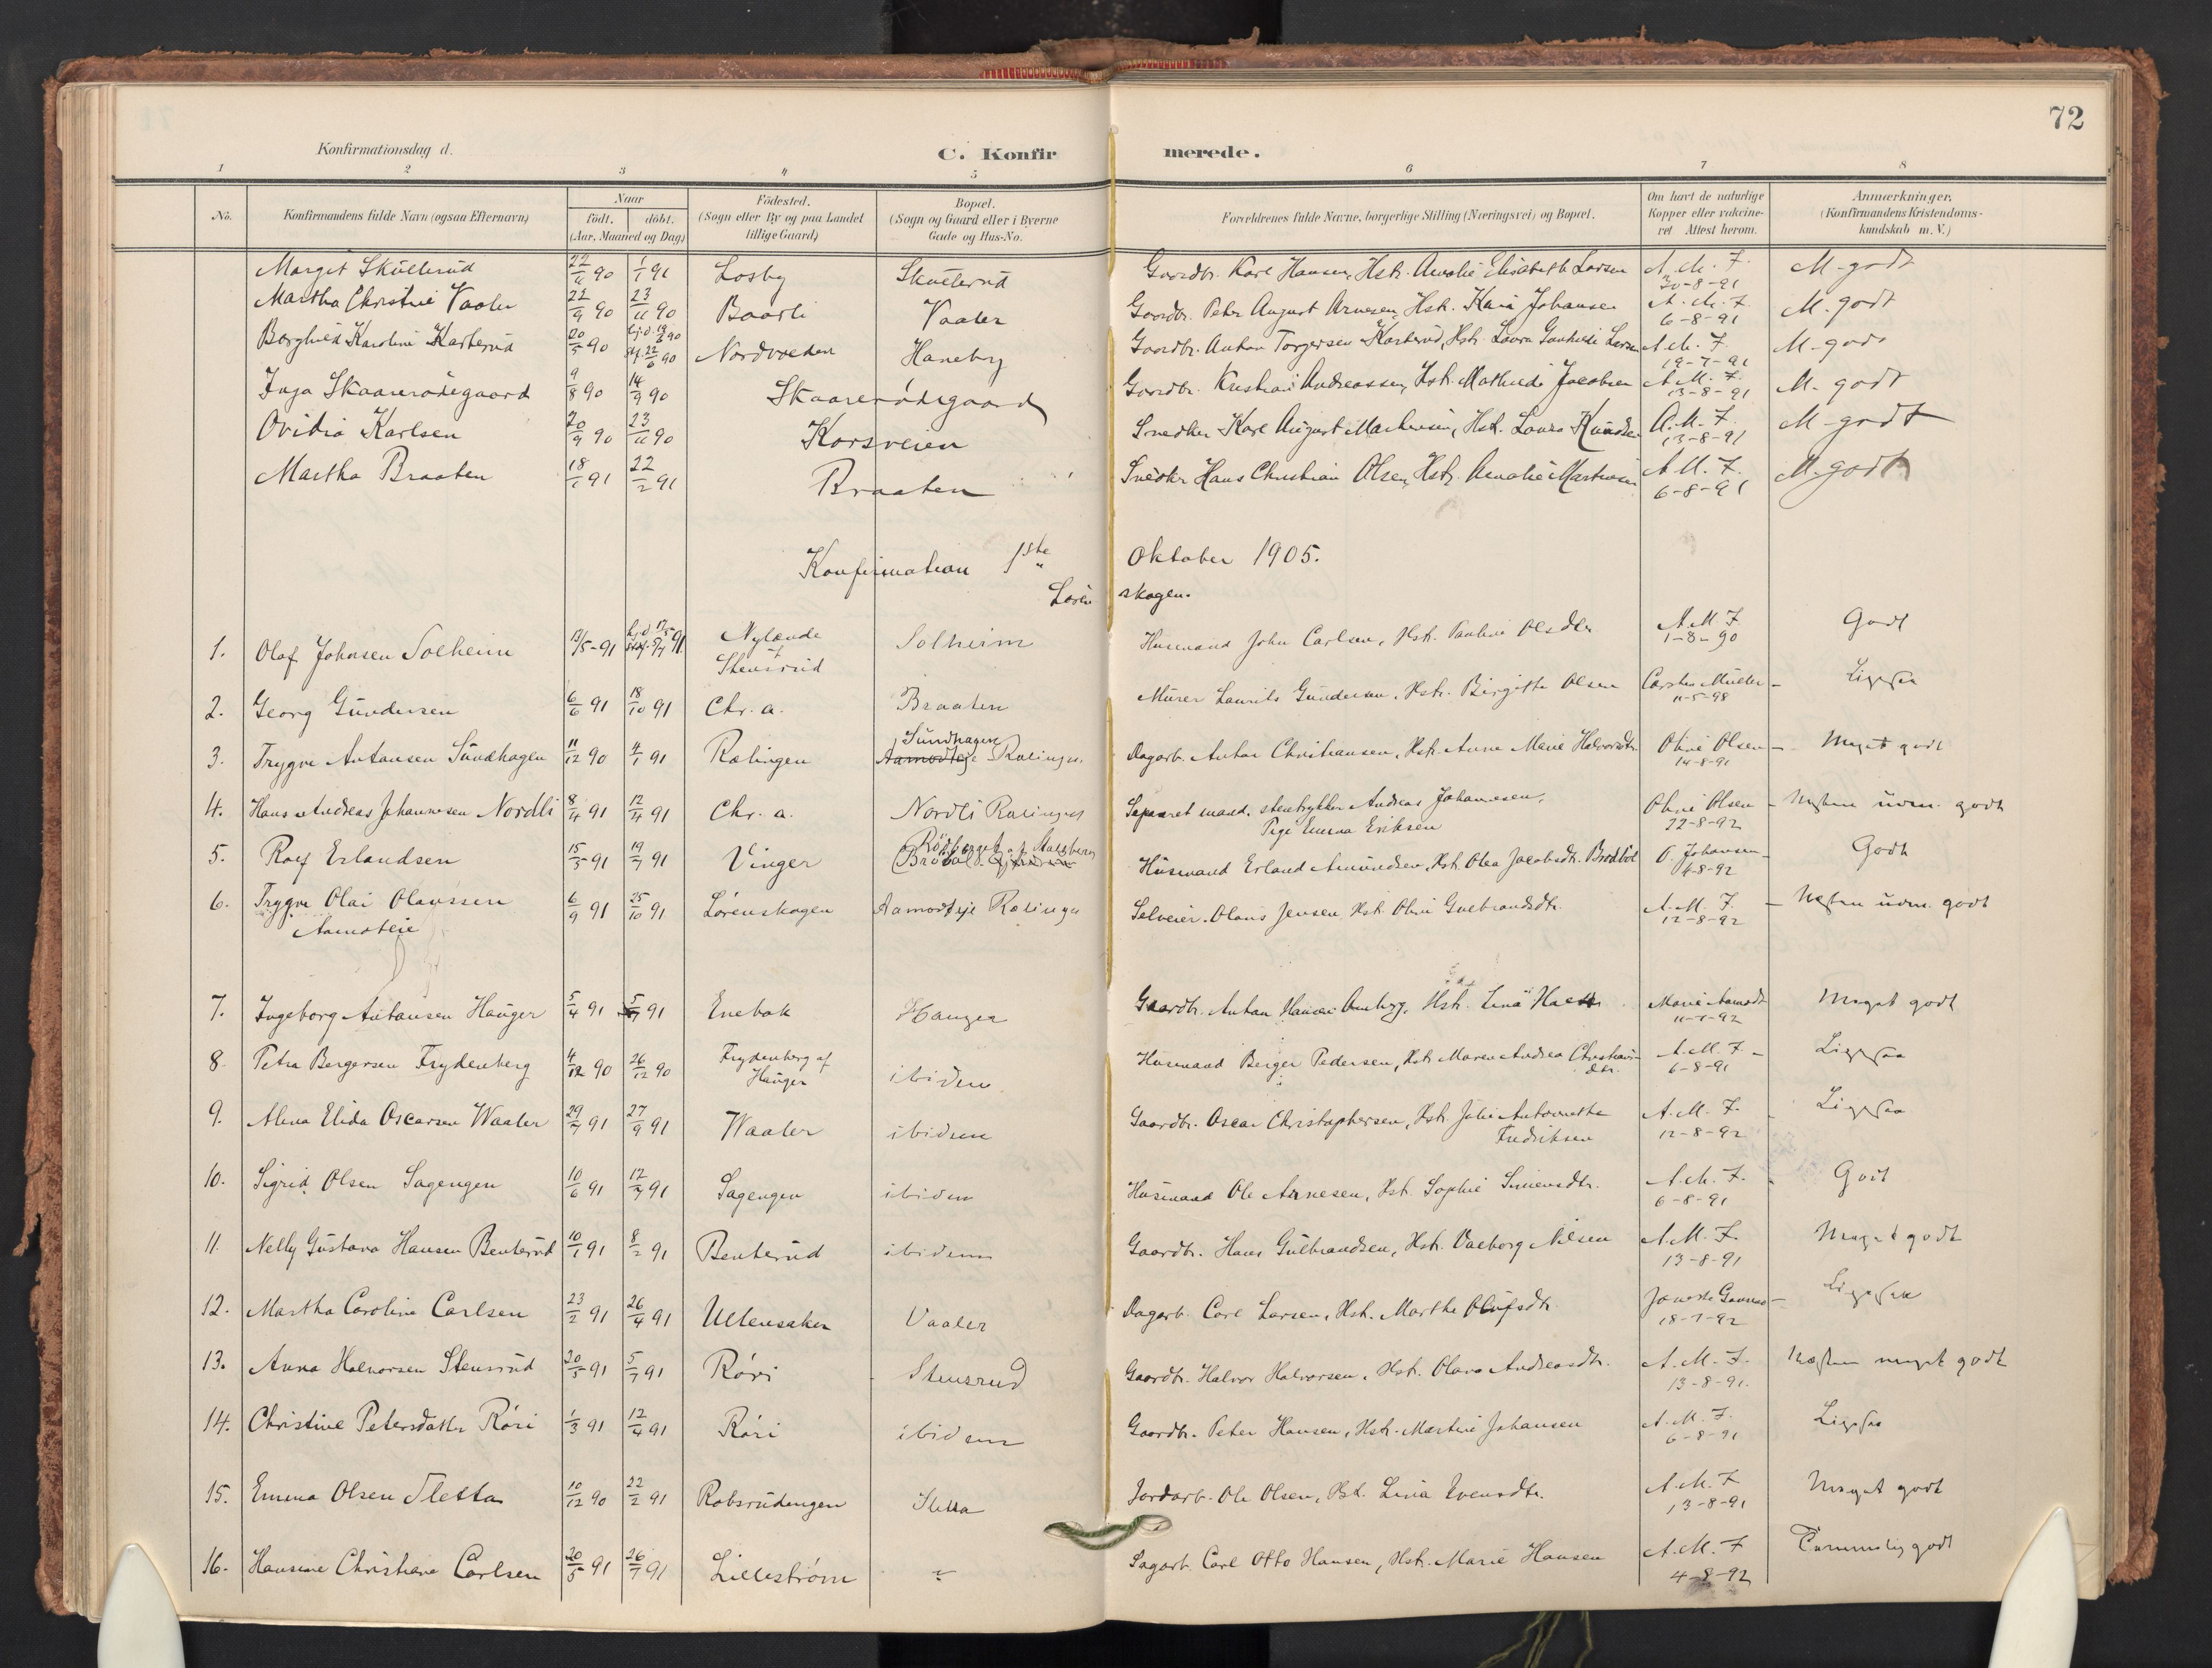 72
Konfirmationsdag d.
C. Konfirmerede.
1 2 3 4 5 6 7 8
No. Konfirmandens fulde Navn (ogsaa Efternavn) Naar födt. döbt. (Aar, Maaned og Dag) Födested. (Sogn eller By og paa Landet tillige Gaard) Bopæl. (Sogn og Gaard eller i Byerne Gade og Hus-No. Forældrenes fulde Navne, borgerlige Stilling (Næringsvei) og Bopæl. Om havt de naturlige Kopper eller vakcineret Attest herom. Anmærkninger. (Konfirmandens Kristendomskundskab m. V.)
Margit Skullerud 90 1/1 91 Losby Skullerud Gaardbr. Karl Hansen, Hstr. Amalie Elisabeth Larsen A. M. F. 30-8-91 M-godt
Martha Christine Vaaler 22/9 90 23/11 90 Baarli Vaaler Gaardbr. Peter August Arnesen, Hstr. Johansen A. M. F. 6-8-91 M. godt
Borghild Karoline Karterud 20/5 90 Nordvoeden Haneborg Gaardbr. Anton Torgersen Karterud, Hstr. Laura Larsen A. M. F. 19-7-91 M-godt
Inga Skaarerødegaard 9/8 90 14/9 90 Skaarerødegaard Gaardbr. Kristian Andreassen, Hstr. Mathilde Jacobsen A. M. F. 13-8-91 M. godt
Ovidia Karlsen 20/9 90 23/11 90 Korsveien Snedker Karl August Martinsen, Hst. Laura Knudsen A. M. F. 13-8-91 M-godt
Martha Braaten 18/1 91 22/2 91 Braaten Snedker Hans Christian Olsen, Hst. Amalie A. M. F. 6-8-91 M. godt
Konfirmation 1ste Oktober 1905.
Lørenskogen.
1. Olaf Johnsen Solheim 13/5-91 hj.d 17/5 91 Nylænde af Stensrud Solheim Husmand John Carlsen, Hst. Pauline Olsdtr A. M. F 1-8-90 Godt
2. Georg Gundersen 6/6 91 18/10 91 Chr. a. Braaten Murer Laurits Gundersen, Hstr. Birgitte Olsen 11-5-98 Ligesaa
3. Trygve Antonsen Sundhagen 11/12 90 4/1 91 Rælingen Sundhagen Aamodteje Rælingen Dagarb. Anton Christiansen, Hst. Anne Marie Halvorsdtr. Oline Olsen 14-8-91 Meget godt
4. Hans Andreas Johannesen Nordli 8/4 91 12/4 91 Chr. a. Nordli Rælingen Separeret mand. stentrykker Andreas Johannesen, Pige Emma Eriksen Oline Olsen 22-8-92 Næsten udm. godt
5. Rolf Erlandsen 15/5 91 19/7 91 Vinger Husmand Erland Amundsen, Hst. Olea Jacobsdtr. Brødbøl O. Johansen 4-8-92 Godt
6. Trygve Olai Olaussen Aamoteie 6/9 91 25/10 91 Lørenskogen Aamodteje Rælingen Selveier. Olaus Jensen, Hst. Oline Gulbrandsdtr. A. M. F. 12-8-92 Næsten udm. godt
7. Ingeborg Antonsen Hauger 5/4 91 91 Enebak Hauger Gaardbr. Anton Hansen Hstr. Lina A. M. Marie Aamodt 92 Meget godt
8. Petra Bergersen Frydenberg 4/12 90 26/12 90 Frydenberg af Hauger ibidem Husmand Berger Pedersen, Hst. Maren Andrea Christiansdtr. A. M. F. 6-8-91 Ligesaa
9. Alma Elida Oscarsen Waaler 29/7 91 27/9 91 Waaler ibidem Gaardbr. Oscar Christophersen, Hst. Julie Antonette Fredriksen A. M. F. 12-8-92 Ligesaa
10. Sigrid Olsen Sagengen 10/6 91 12/7 91 Sagengen ibidem Husmand Ole Arnesen, Hst. Sophie Simensdtr. A. M. F. 6-8-91 Godt
11. Nelly Gustava Hansen Benterud 10/1 91 8/2 91 Benterud ibidem Gaardbr. Hans Gulbrandsen, Hstr. Valborg Nilsen A. M. F. 13-8-91 Meget godt
12. Martha Caroline Carlsen 23/2 91 26/4 91 Ullensaker Vaaler Dagarb. Carl Larsen, Hst. Marthe Olufsdtr. 18-7-92 Ligesaa
13. Anna Halvorsen Stensrud 20/5 91 5/7 91 Røri Stensrud Gaardbr. Halvor Halvorsen, Hst. Olava Andreasdtr. A. M. F. 13-8-91. Næsten meget godt
14. Christine Petersdatter Røri 1/3 91 12/4 91 Røri ibidem Gaardbr. Peter Hansen, Hst. Martine Johansen A. M. F. 6-8-91 Ligesaa
15. Emma Olsen Sletta 10/12 90 22/2 91 Robsrudengen Sletta Jordarb. Ole Olsen, Hst. Lina Evensdtr. A. M. F 13-8-91 Meget godt
16. Hansine Christiane Carlsen 20/5 91 26/7 91 Lillestrøm Sagarb. Carl Otto Hansen, Hst. Marie Hansen A. M. F 4-8-92 Temmelig godt